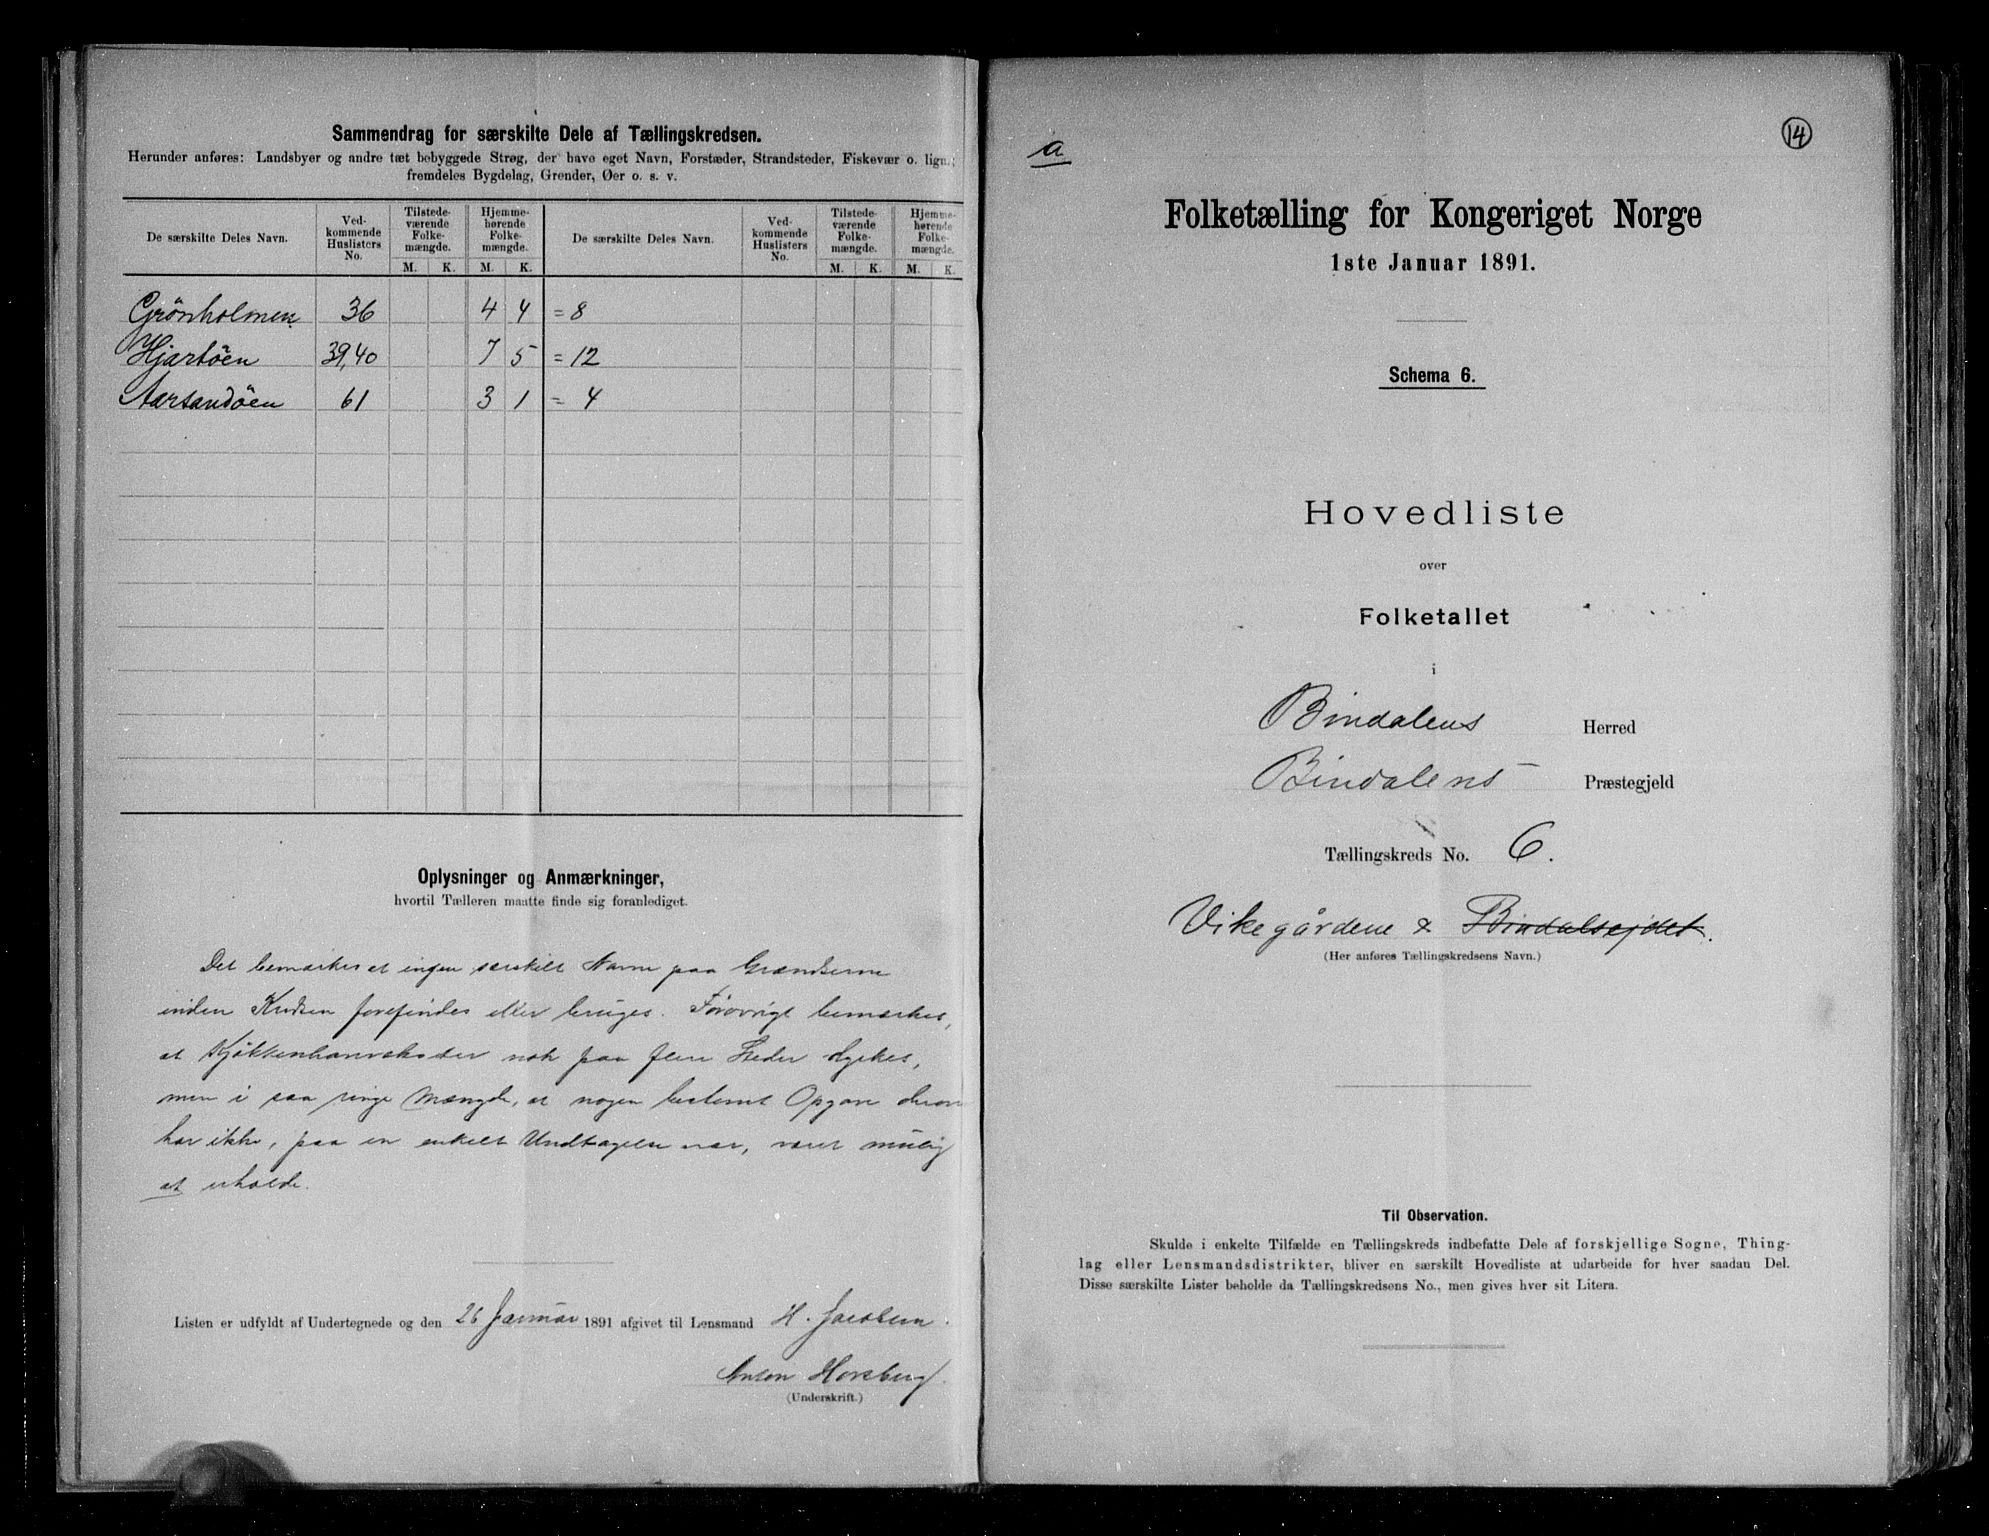 Sammendrag for særskilte Dele af Tællingskredsen.
Herunder anføres: Landsbyer og andre tæt bebyggede Strøg, der have eget Navn, Forstæder, Strandsteder, Fiskevær o. lign.;
fremdeles Bygdelag, Grender, Øer o. s. v.
De særskilte Deles Navn. Ved-kommende Huslisters No. Tilstede-værende Folke-mængde. Hjemme-hørende Folke-mængde. De særskilte Deles Navn. Ved-kommende Huslisters No. Tilstede-værende Folke-mængde. Hjemme-hørende Folke-mængde.
M. K. M. K. M. K. M. K.
Grönholmen 36 4 4 = 8
Hjartöen 39,40 7 5 = 12
Aarsandöen 61 3 1 = 4
Oplysninger og Anmærkninger,
hvortil Tælleren maatte finde sig foranlediget.
Det bemærkes at ingen særskilt Navn paa Grændserne
inden Kredsen forefindes eller bruges. Forøvrigt bemærkes,
at Kjøkkenhavevækster nok paa flere Steder dyrkes,
men i saa ringe Mængde, at nogen bestemt Opgave derom
har ikke, paa en enkelt Undtagelse nær, været mulig
at erholde.
Listen er udfyldt af Undertegnede og den 26 Januar 1891 afgivet til Lensmand H. Jacobsen.
Anton Horsberg.
(Underskrift.)
a
14
Folketælling for Kongeriget Norge
1ste Januar 1891.
Schema 6.
Hovedliste
over
Folketallet
i
Bindalens Herred
Bindalens Præstegjeld
Tællingskreds No. 6.
Vikegårdene & Bindalsejdet.
(Her anføres Tællingskredsens Navn.)
Til Observation.
Skulde i enkelte Tilfælde en Tællingskreds indbefatte Dele af forskjellige Sogne, Thing-
lag eller Lensmandsdistrikter, bliver en særskilt Hovedliste at udarbeide for hver saadan Del.
Disse særskilte Lister beholde da Tællingskredsens No., men gives hver sit Litera.